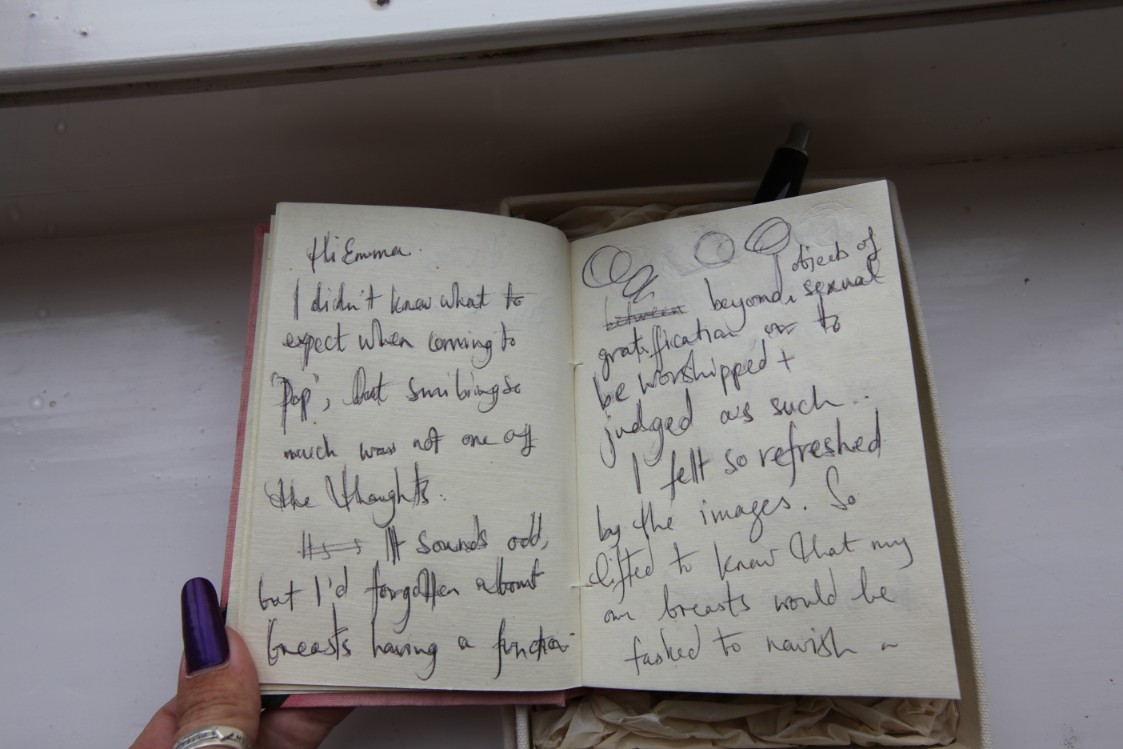 Hi Emma.
I didn't know what to
expect when coming to
'Pop', but smiling so
much was not one of
the thoughts.
It sounds odd,
but I'd forgotten about
breasts having a function
between beyond objects of
sexual
gratification or to
be worshipped +
judged as such..
I felt so refreshed
by the images. So
lifted to know that my
own breasts would be
tasked to nourish ~